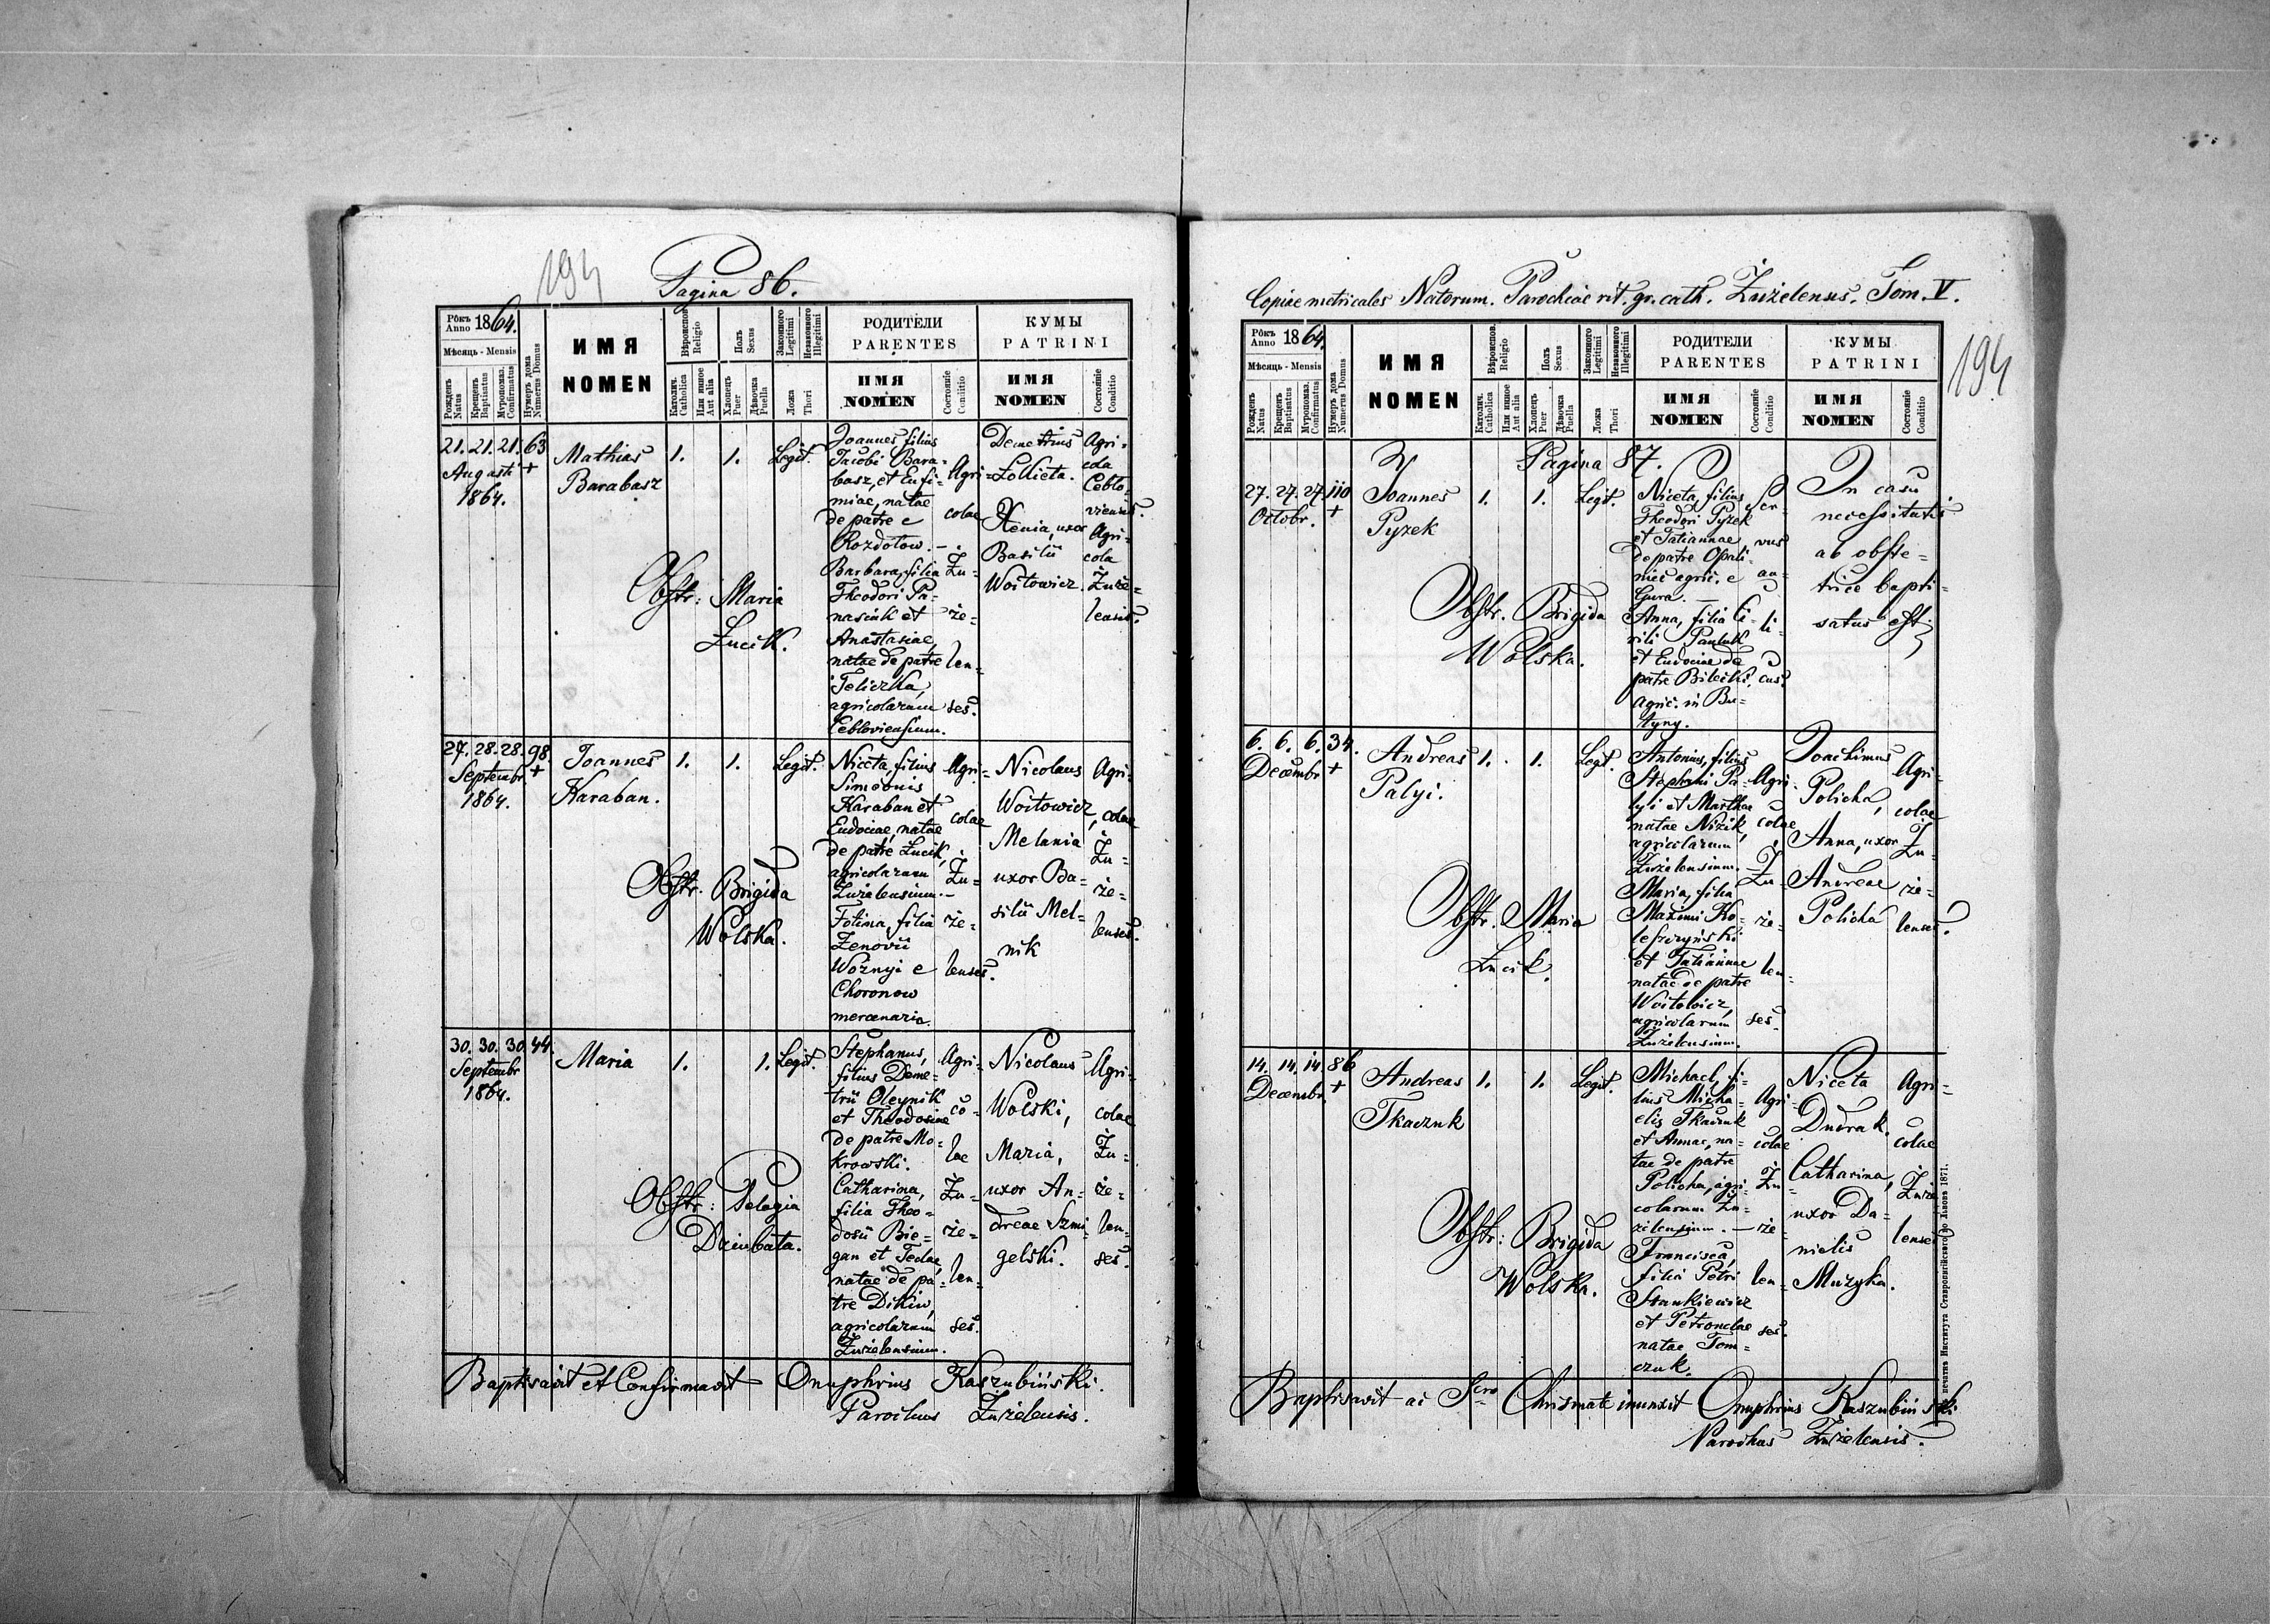 194
Pagina 86.
Рôкъ Anno 1864.
Мѣсяць - Mensis
Рожденъ Natus
Крещенъ Baptisatus
Мѵропомаз. Confirmatus
Нумеръ дома Numerus Domus
ИМЯ
NOMEN
Вѣроиспов. Religio
Католич. Catholica
Или инное Aut alia
Полъ Sexus
Хлопець Puer
Дѣвочка Puella
Законного Legitimi
Незаконного Illegitimi
Ложа Thori
РОДИТЕЛИ
PARENTES
ИМЯ
NOMEN
Состоянiе Conditio
КУМЫ
PATRINI
ИМЯ
NOMEN
Состоянiе Conditio
21. 21. 21. 63
Augusti +
1864.
Mathias
Barabasz
1.
1.
Legit.
Joannes filius
Jacobi Bara-
basz, et Eufi-
miae, natae
de patre e
Rozdołow. -
Barbara, filia
Theodori Pa-
nasiuk et
Anastasiae,
natae de patre
Teliczka,
agricolarum
Cebloviensium.
Agri-
colae
Żu-
że-
len-
ses.
Demetrius
Xenia, uxor
Basilii
Woitowicz.
Agri-
cola
Ceblo-
viensis.
Agri-
cola
Żuże-
lensis.
Obstr: Maria
Łucik.
27. 28. 28. 98.
Septembr. +
1864.
Joannes
Karaban.
1.
1.
Legit.
Niceta, filius
Simeonis
Karaban et
Eudociae, natae
de patre Łucik,
agricolarum
Żużelensium. -
Fotina, filia
Zenovii
Woźnyi e
Choronow
mercenaria.
Agri-
colae
Żu-
że-
lenses.
Nicolaus
Woitowicz,
Melania
uxor Ba-
silii Mel-
nik
Agri-
colae
Żu-
że-
lenses.
Obstr. Brigida
Wolska.
30. 30. 30. 44.
Septembr
1864.
Maria
1.
1.
Legit.
Stephanus,
filius Deme-
trii Oleynik
et Theodosiae
de patre Mo-
krowski.
Catharina,
filia Theo-
dosii Bie-
gan et Teclae,
natae de pa-
tre Dikiw,
agricolarum
Żużelensium.
Agri-
co-
lae
Żu-
że-
len-
ses.
Nicolaus
Wolski,
Maria,
uxor An-
dreae Szmi-
gelski.
Agri-
colae
Żu-
że-
len-
ses.
Obstr: Pelagia
Dziubata.
Baptisavit et Confirmavit Onuphrius Kaszubiński.
Parochus Żużelensis.
Copiae metricales Natorum. Parochiae rit. gr. cath. Żużelensis. Tom. V.
194
Рôкъ Anno 1864.
Мѣсяць - Mensis
Рожденъ Natus
Крещенъ Baptisatus
Мѵропомаз. Confirmatus
Нумеръ дома Numerus Domus
ИМЯ
NOMEN
Вѣроиспов. Religio
Католич. Catholica
Или инное Aut alia
Полъ Sexus
Хлопець Puer
Дѣвочка Puella
Законного Legitimi
Незаконного Illegitimi
Ложа Thori
РОДИТЕЛИ
PARENTES
ИМЯ
NOMEN
Состоянiе Conditio
КУМЫ
PATRINI
ИМЯ
NOMEN
Состоянiе Conditio
Pagina 87.
27. 27. 27. 110
Octobr. +
Joannes
Pyzek
1.
1.
Legit.
Niceta, filius
Theodori Pyzek
et Tatiannae
de patre Opali-
nicz agric. e
Gura. -
Anna, filia Ci-
rili Pauluk
et Eudociae de
patre Bilecki,
agric. in Bu-
tyny.
Ser-
vus
au-
li-
cus.
In casu
necessitatis
ab obste-
trice bapti-
satus est.
Obstr. Brigida
Wolska.
6. 6. 6. 34.
Decembr. +
Andreas
Palyi.
1.
1.
Legit.
Antonius, filius
Stephani Pa-
lyi et Marthae
natae Nizik,
agricolarum
Żużelensium. -
Maria, filia
Maximi Ko-
leszczyński
et Tatiannae
natae de patre
Woitowicz,
agricolarum
Żużelensium.
Agri-
colae
Żu-
że-
len-
ses.
Joachimus
Policha,
Anna, uxor
Andreae
Policha
Agri-
colae
Żu-
że-
lenses.
Obstr. Maria
Łucik.
14. 14. 14. 86
Decembr. +
Andreas
Tkaczuk
1.
1.
Legit.
Michael, fi-
lius Micha-
elis Tkaczuk
et Annae, na-
tae de patre
Policha, agri-
colarum Żu-
żelensium. -
Francisca,
filia Petri
Stankiewicz
et Petronelae
natae Tom-
czuk.
Agri-
colae
Żu-
że-
len-
ses.
Niceta
Dudrak,
Catharina,
uxor Da-
nielis
Muzyka.
Agri-
colae
Żuże-
lenses
Obstr: Brigida
Wolska.
Baptisavit ac Scro Chrismate inunxit Onuphrius Kaszubiński
Parochus Żużelensis.
печатнѣ Института Ставропигійского во Львовѣ 1871.